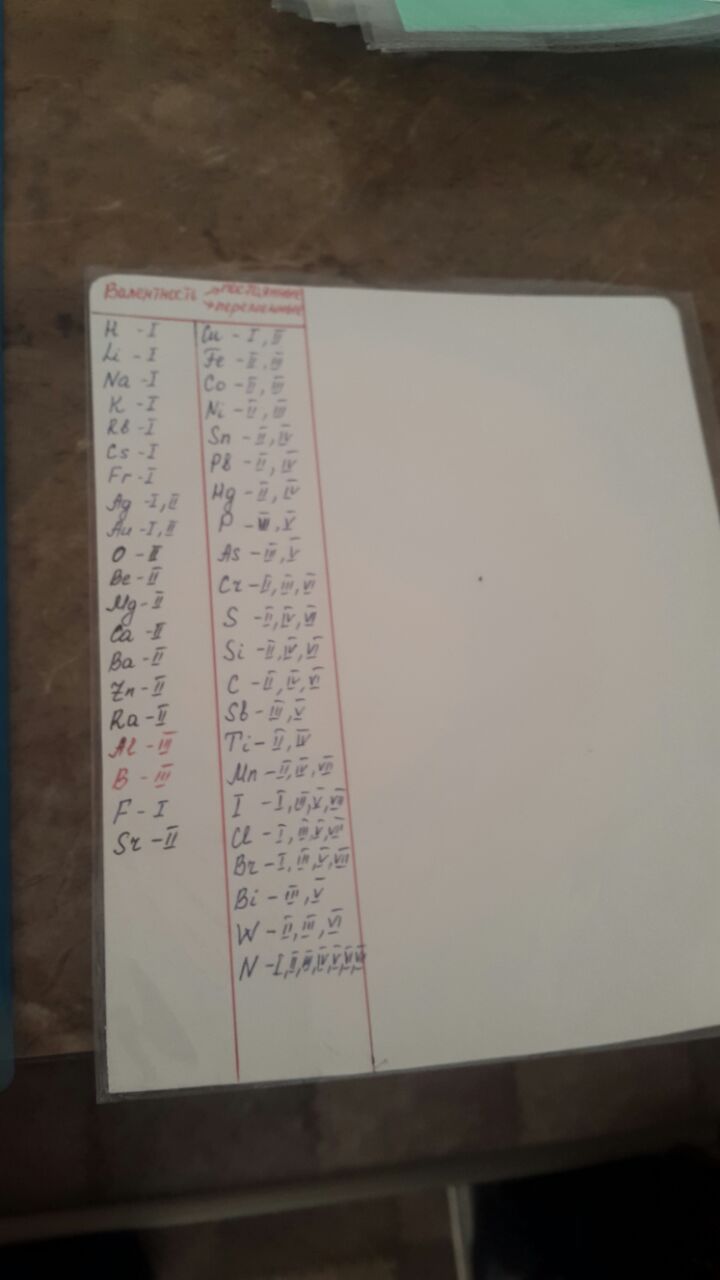 Валентность →постоянные
→переменные
H - I
Li - I
Na - I
K - I
Rb - I
Cs - I
Fr - I
Ag - I, II
Au - I, II
O - II
Be - II
Mg - II
Ca - II
Ba - II
Zn - II
Ra - II
Al - III
B - III
F - I
Sr - II
Cu - I, II
Fe - II, III
Co - II, III
Ni - II, III
Sn - II, IV
Pb - II, IV
Hg - II, IV
P - III, V
As - III, V
Cr - II, III, VI
S - II, IV, VI
Si - II, IV, VI
C - II, IV, VI
Sb - III, V
Ti - II, IV
Mn - II, IV, VII
I - I, III, V, VII
Cl - I, III, V, VII
Br - I, III, V, VII
Bi - III, V
W - II, III, VI
N - I, II, III, IV, V, VI, VII